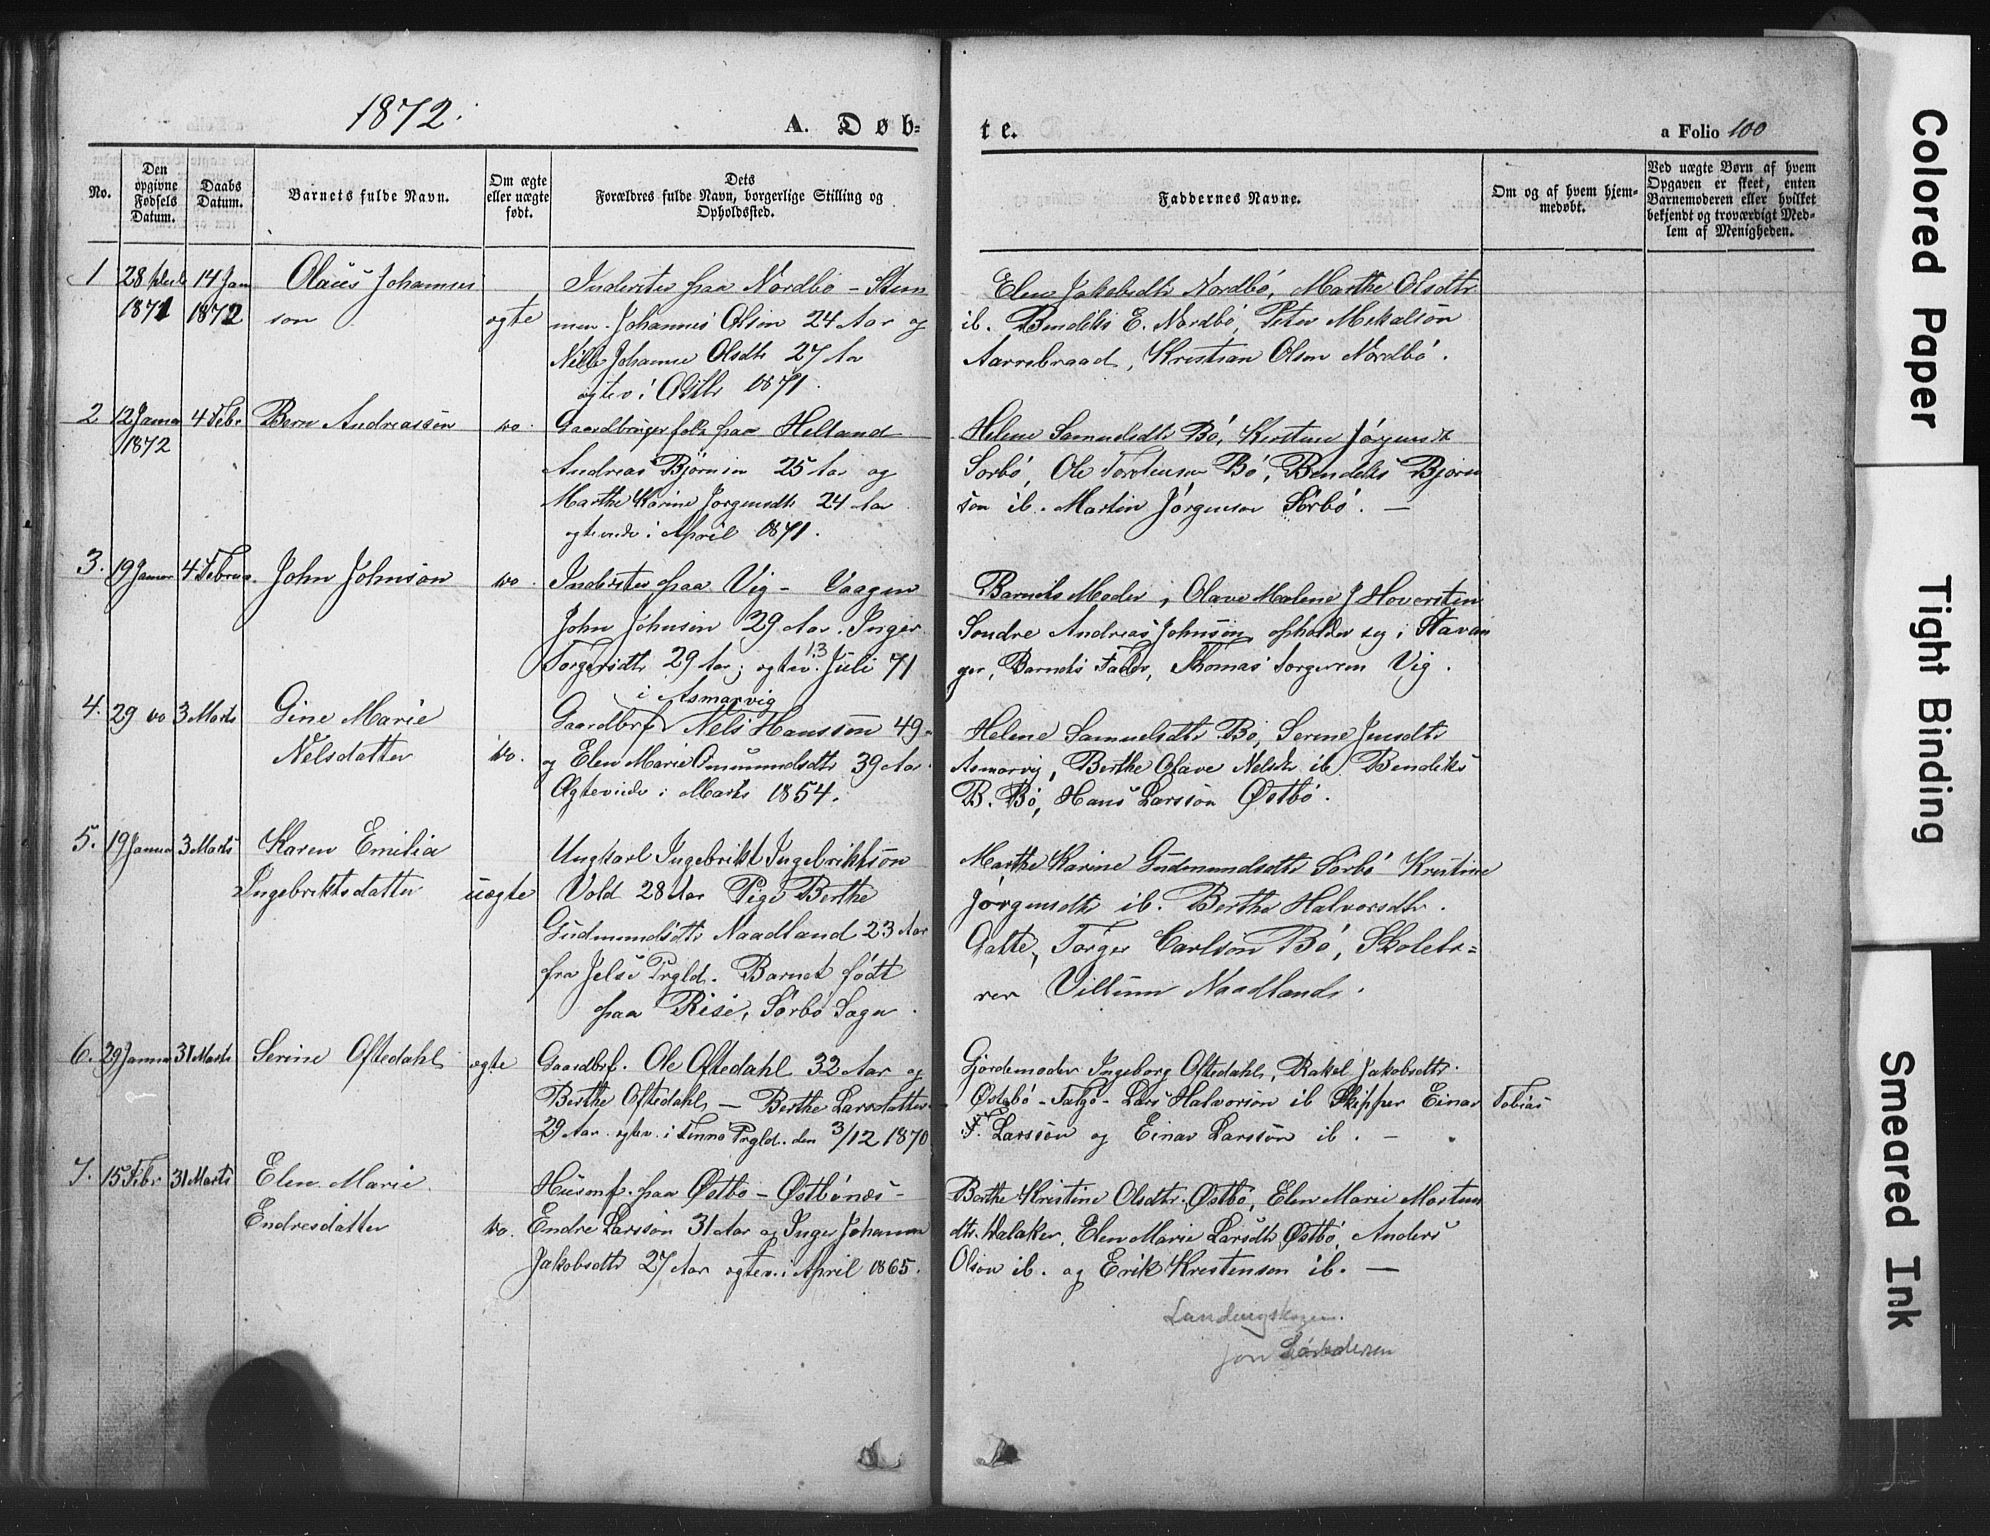 1872.
A. Døb-
te.
a Folio 100
No.
Den
opgivne
Fødsels
Datum.
Daabs
Datum.
Barnets fulde Navn.
Om ægte
eller uægte
født.
Dets
Forældres fulde Navn, borgerlige Stilling og
Opholdssted.
Faddernes Navne.
Om og af hvem hjem-
medøbt.
Ved uægte Børn af hvem
Opgaven er skeet, enten
Barnemoderen eller hvilket
bekjendt og troværdigt Med-
lem af Menigheden.
1
28
1871
14 Jan
1872
Olaus Johannes
son
ægte
Inderster paa Nordbø - Stem
men. Johannes Olson 24 Aar og
Nille Johanne Olsdtr 27 Aar
ægtev. i Octbr 1871.
Elen Jakobsdtr Nordbø, Marthe Olsdtr
ib. Bendiks E. Nordbø, Peter Mekalson
Aarrebraad, Kristian Olson Nordbø.
2
12 Janua
1872
4 Febr
Bern Andreassøn
do.
Gaardbrugerfolk paa Helland
Andreas Bjørnson 25 Aar og
Marthe Karine Jørgensdtr 24 Aar
ægteviede i April 1871.
Helene Samuelsdtr Bø, Kirstine Jørgensdt
Sørbø, Ole Torstensen Bø, Bendiks Bjørn
søn ib. Martin Jørgensen Sørbø. -
3.
19 Januar
4 Februa.
John Johnsøn
do.
Inderster paa Vig - Vaagen
John Johnsøn 29 Aar. Inger
Torgersdtr 29 Aar; ægtev. 13 Juli 71
Barnets Moder, Olave Malene J Hoversten
Søndre Andreas Johnsøn opholder sig i Stavan
ger, Barnets Fader, Thomas Torgersen Vig.
4.
29 do
3 Marts
Gine Marie
Nelsdatter
do.
i Asmarvig
Gaardbrf Nels Hanssøn 49
og Elen Marie Omundsdtr 39 Aar
Ægteviede i Marts 1854.
Helene Samuelsdtr Bø, Serine Jensdtr
Asmarvig, Berthe Olave Nelsdtr ib. Bendiks
B. Bø, Hans Larssøn Østbø.
5.
19 Janua
3 Marts
Karen Emilia
Ingebriktsdatter
uægte
Ungkarl Ingebrikt Ingebriktsøn
Vold 28 Aar Pige Berthe
Gudmundsdtr Naadland 23 Aar
fra Jelse Prgld. Barnet født
paa Rise, Sørbø Sogn.
Marthe Karine Gudmundsdtr Sørbø Kristine
Jørgensdtr ib. Berthe Halvorsdtr.
Galte, Torger Carlsøn Bø, Skolelæ-
rer Villum Naadland.
6.
29 Janua
31 Marts
Serine Oftedahl
ægte
Gaardbrf. Ole Oftedahl 32 Aar og
Berthe Oftedahl - Berthe Larsdatter
29 Aar ægtev. i Finnø Prgld. den 3/12 1870
Gjordemoder Ingeborg Oftedahl, Rakel Jakobsdtr.
Østbø - Talgø - Lars Halvorsøn ib Skipper Einar Tobias
F. Larssøn og Einar Larssøn ib. -
7.
15 Febr
31 Marts
Elen Marie
Endresdatter
do.
Husmf. paa Østbø - Østbønæs -
Endre Larssøn 31 Aar og Inger Johanna
Jakobsdtr 27 Aar ægtev. i April 1865.
Berthe Kristine Olsdtr Østbø, Elen Marie Morten
dtr. Walaker, Elen Marie Larsdtr Østbø, Anders
Olson ib. og Erik Kristensen ib. -
Jon
Colored Paper
Tight Binding
Smeared Ink